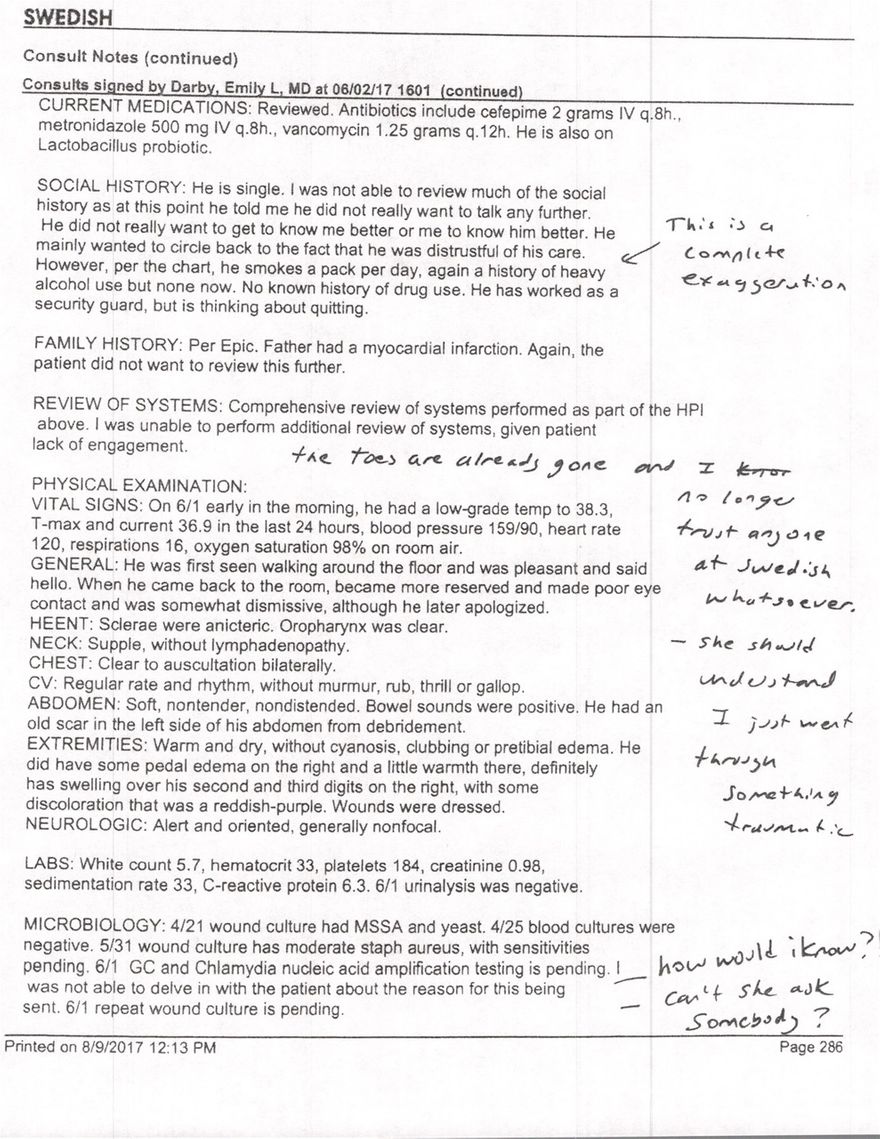 SWEDISH
Consult Notes (continued)
Consults signed by Darby, Emily L, MD at 06/02/17 1601 (continued)
CURRENT MEDICATIONS: Reviewed. Antibiotics include cefepime 2 grams IV q.8h.,
metronidazole 500 mg IV q.8h., vancomycin 1.25 grams q.12h. He is also on
Lactobacillus probiotic.
SOCIAL HISTORY: He is single. I was not able to review much of the social
history as at this point he told me he did not really want to talk any further.
He did not really want to get to know me better or me to know him better. He
mainly wanted to circle back to the fact that he was distrustful of his care.
However, per the chart, he smokes a pack per day, again a history of heavy
alcohol use but none now. No known history of drug use. He has worked as a
security guard, but is thinking about quitting.
This is a
complete
exaggeration
FAMILY HISTORY: Per Epic. Father had a myocardial infarction. Again, the
patient did not want to review this further.
REVIEW OF SYSTEMS: Comprehensive review of systems performed as part of the HPI
above. I was unable to perform additional review of systems, given patient
lack of engagement.
the toes are already gone and I
no longer
trust anyone
at swedish
whatsoever.
- she should
understand
I just went
through
something
traumatic
PHYSICAL EXAMINATION:
VITAL SIGNS: On 6/1 early in the morning, he had a low-grade temp to 38.3,
T-max and current 36.9 in the last 24 hours, blood pressure 159/90, heart rate
120, respirations 16, oxygen saturation 98% on room air.
GENERAL: He was first seen walking around the floor and was pleasant and said
hello. When he came back to the room, became more reserved and made poor eye
contact and was somewhat dismissive, although he later apologized.
HEENT: Sclerae were anicteric. Oropharynx was clear.
NECK: Supple, without lymphadenopathy.
CHEST: Clear to auscultation bilaterally.
CV: Regular rate and rhythm, without murmur, rub, thrill or gallop.
ABDOMEN: Soft, nontender, nondistended. Bowel sounds were positive. He had an
old scar in the left side of his abdomen from debridement.
EXTREMITIES: Warm and dry, without cyanosis, clubbing or pretibial edema. He
did have some pedal edema on the right and a little warmth there, definitely
has swelling over his second and third digits on the right, with some
discoloration that was a reddish-purple. Wounds were dressed.
NEUROLOGIC: Alert and oriented, generally nonfocal.
LABS: White count 5.7, hematocrit 33, platelets 184, creatinine 0.98,
sedimentation rate 33, C-reactive protein 6.3. 6/1 urinalysis was negative.
MICROBIOLOGY: 4/21 wound culture had MSSA and yeast. 4/25 blood cultures were
negative. 5/31 wound culture has moderate staph aureus, with sensitivities
pending. 6/1 GC and Chlamydia nucleic acid amplification testing is pending. I
was not able to delve in with the patient about the reason for this being
sent. 6/1 repeat wound culture is pending.
how would i know?!
- can't she ask
somebody?
Printed on 8/9/2017 12:13 PM
Page 286